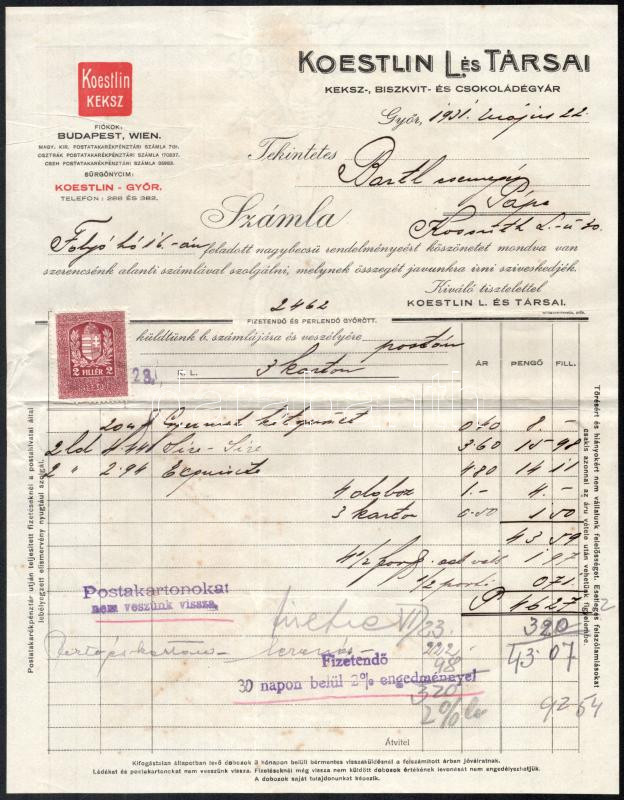 Koestlin
KEKSZ
FIÓKOK:
BUDAPEST, WIEN.
MAGY. KIR. POSTATAKARÉKPÉNZTÁRI SZÁMLA
OSZTRÁK POSTATAKARÉKPÉNZTÁRI SZÁMLA
CSEH POSTATAKARÉKPÉNZTÁRI SZÁMLA
SÜRGÖNYCIM:
KOESTLIN - GYŐR.
TELEFON: 286 ÉS 382.
KOESTLIN L. ÉS TÁRSAI
KEKSZ-, BISZKVIT- ÉS CSOKOLÁDÉGYÁR
Győr, 1931. május 22.
Tekintetes
Bartl
Pápa
Kossuth L.-u 30.
Számla
Folyó hó 16.-án feladott nagybecsü rendelményeért köszönetet mondva van
szerencsénk alanti számlával szolgálni, melynek összegét javunkra irni sziveskedjék.
Kiváló tisztelettel
KOESTLIN L. ÉS TÁRSAI.
2462
FIZETENDŐ ÉS PERLENDŐ GYŐRÖTT.
2 FILLÉR 2
28.
küldtünk b. számlájára és veszélyére postán
K. L. 3 karton
ÁR PENGŐ FILL.
0.40 8.-
2 ld 4.44 Sire-Sire 3.60 15 98
2 " 2.94 Exquisite 4.80 14 11
4 doboz 1.- 4.-
3 karton 0.50 1.50
43 59
1/2 0.71
P 46.27
Postakartonokat
nem veszünk vissza.
320
23
222
98
43 07
Fizetendő
30 napon belül 2% engedménnyel
320
2%
92 54
Átvitel
Postatakarékpénztár utján teljesitett fizetéseknél a postahivatal által
lebélyegzett elismervény nyugtául szolgál.
Törésért és hiányokért nem vállalunk felelősséget. Esetleges felszólamlásokat
csakis azonnal az áru vétele után vehetünk figyelembe.
Kifogástalan állapotban levő dobozok 3 hónapon belüli bérmentes visszaküldésnél a felszámitott árban jóváiratnak.
Ládákat és postakartonokat nem veszünk vissza. Fizetéseknél még vissza nem küldött dobozok értékének levonását nem engedélyezhetjük.
A dobozok saját tulajdonunkat képezik.